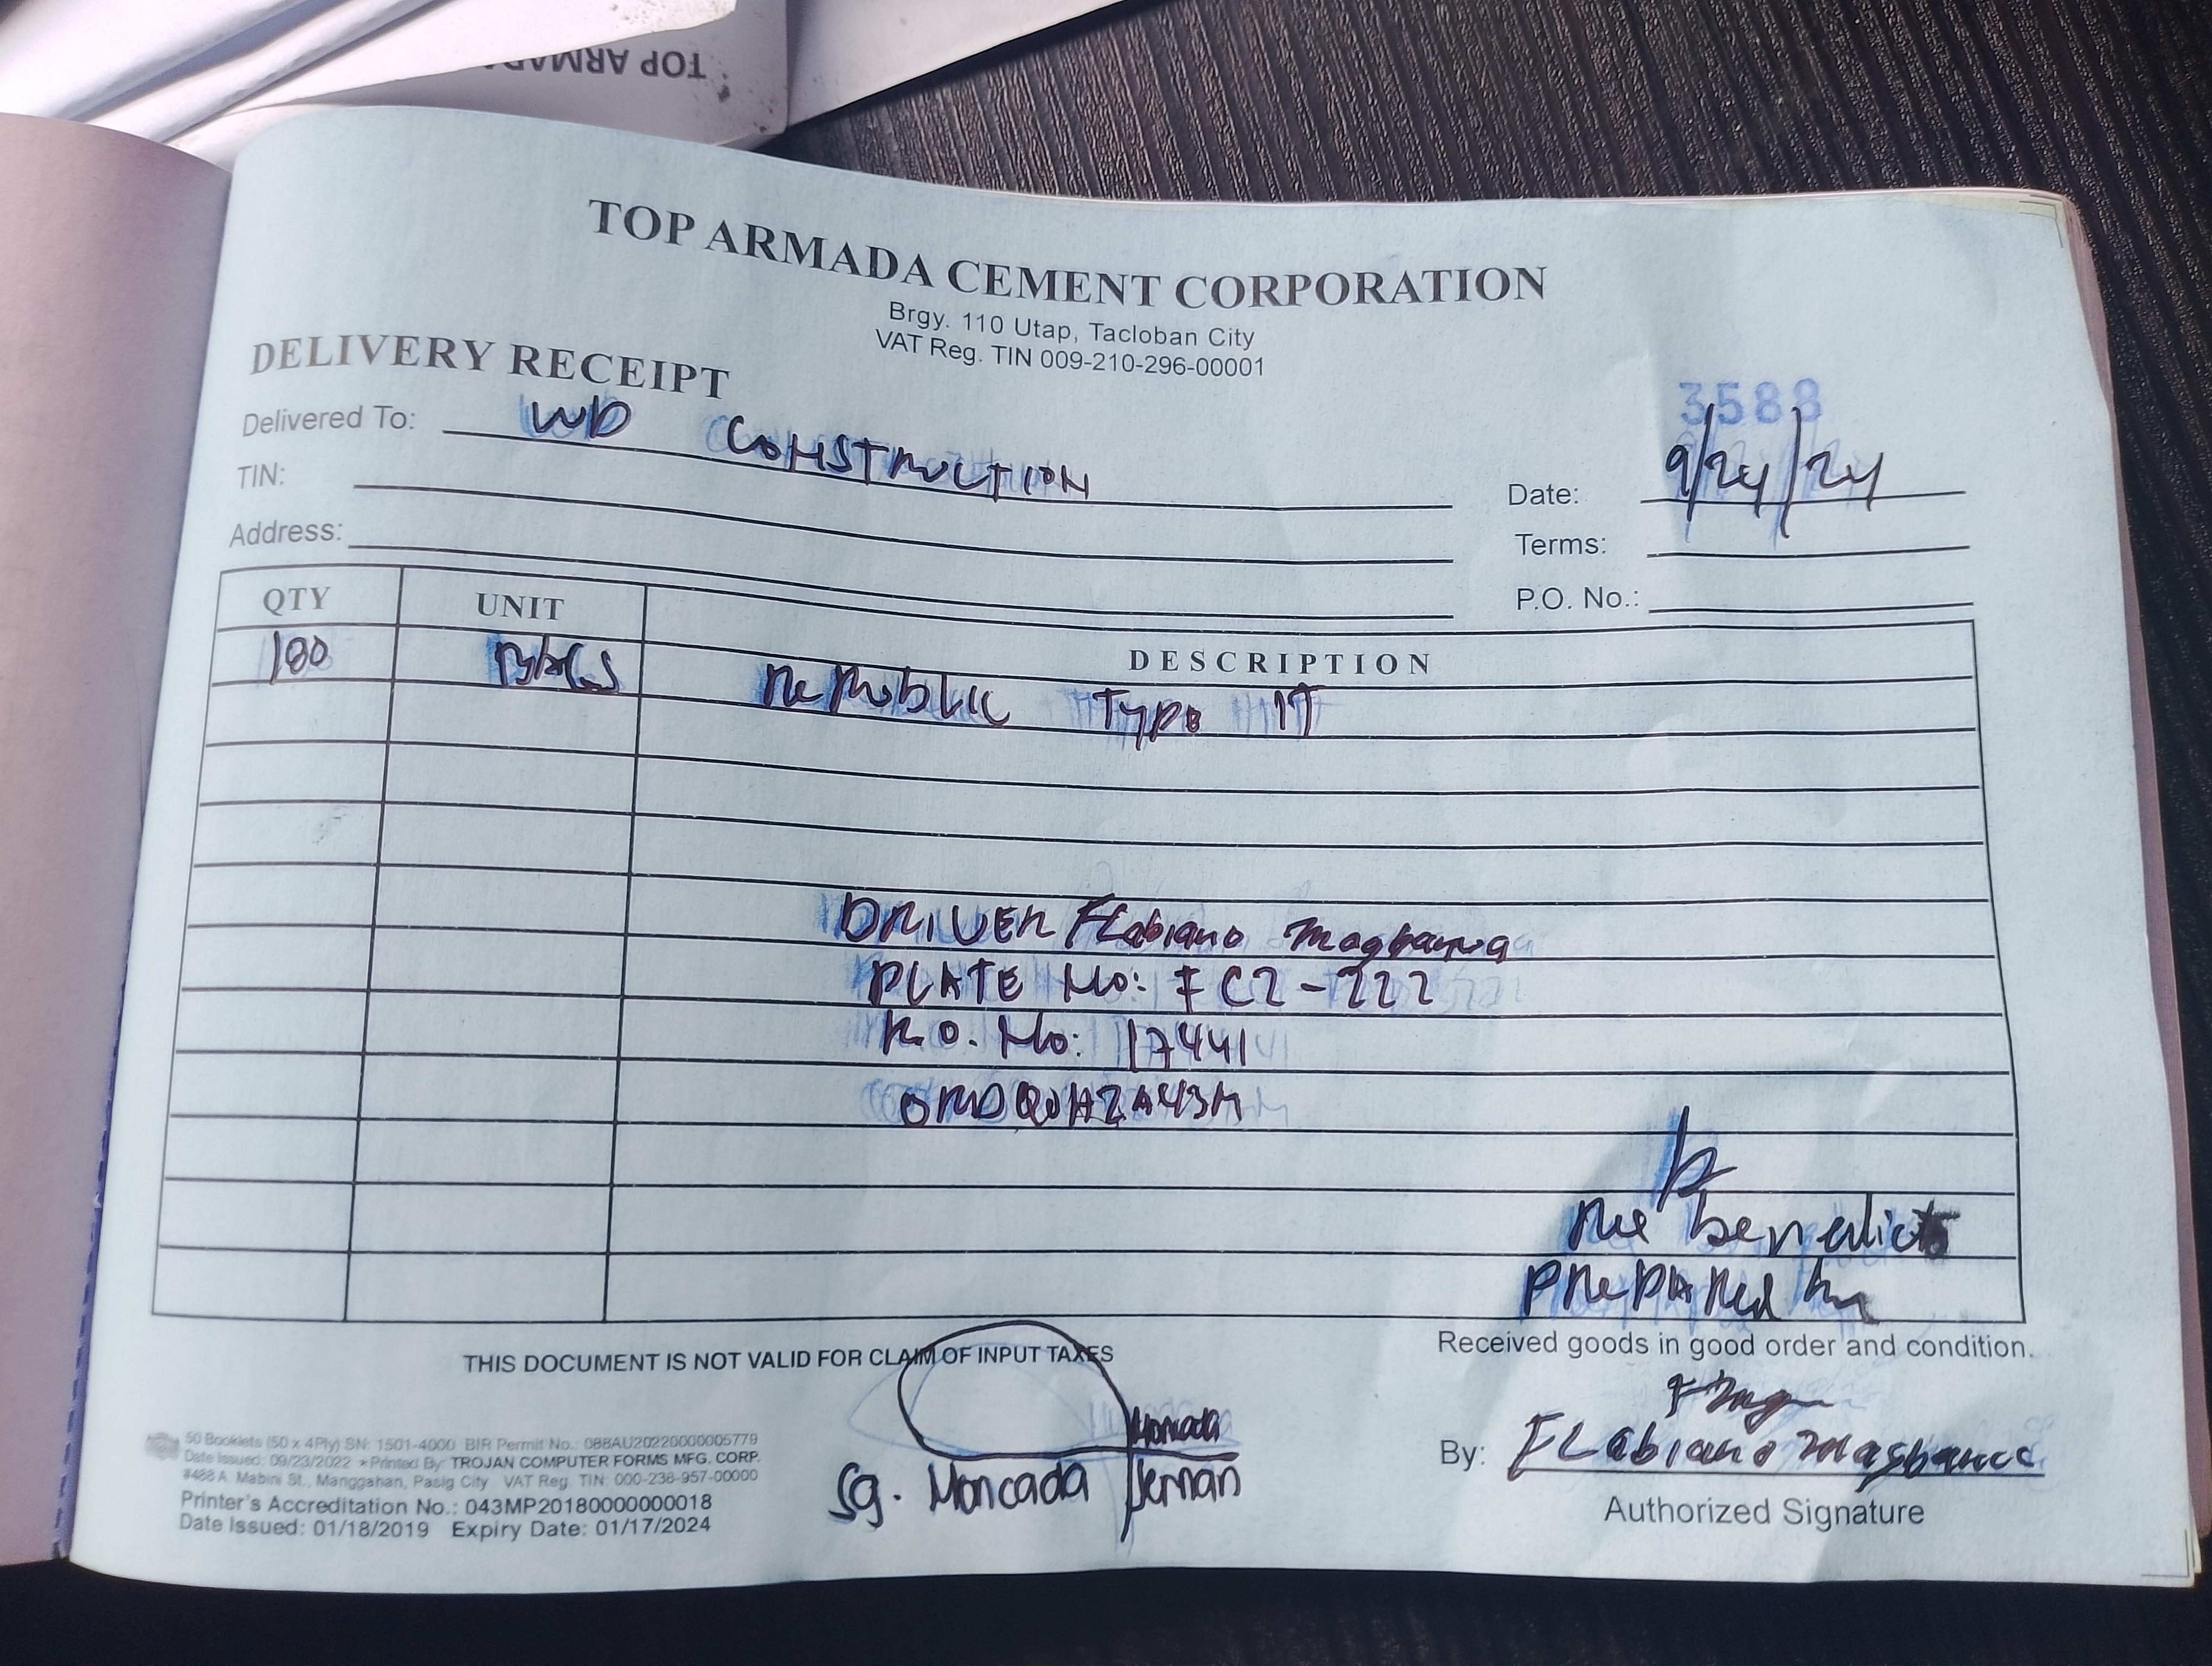 TOP ARMADA
TOP ARMADA CEMENT CORPORATION
Brgy. 110 Utap, Tacloban City
VAT Reg. TIN 009-210-296-00001
DELIVERY RECEIPT
3588
Delivered To: WD CONSTRUCTION
TIN:
Date: 9/24/24
Address:
Terms:
P.O. No.:
QTY UNIT DESCRIPTION
180 BAGS REPUBLIC TYPE 1T
DRIVER Flabiano Magbanua
PLATE No: FCZ-222
R.O. No: 17441
benedict
PREPARED
THIS DOCUMENT IS NOT VALID FOR CLAIM OF INPUT TAXES
Received goods in good order and condition.
Moncada
Sg. Moncada Jernan
By: FLabiano Magbanua
Authorized Signature
50 Booklets (50 x 4Ply) SN: 1501-4000 BIR Permit No.: 088AU20220000005779
Date Issued: 09/23/2022 * Printed By: TROJAN COMPUTER FORMS MFG. CORP.
#488 A. Mabini St., Manggahan, Pasig City VAT Reg. TIN: 000-238-957-00000
Printer's Accreditation No.: 043MP20180000000018
Date Issued: 01/18/2019 Expiry Date: 01/17/2024